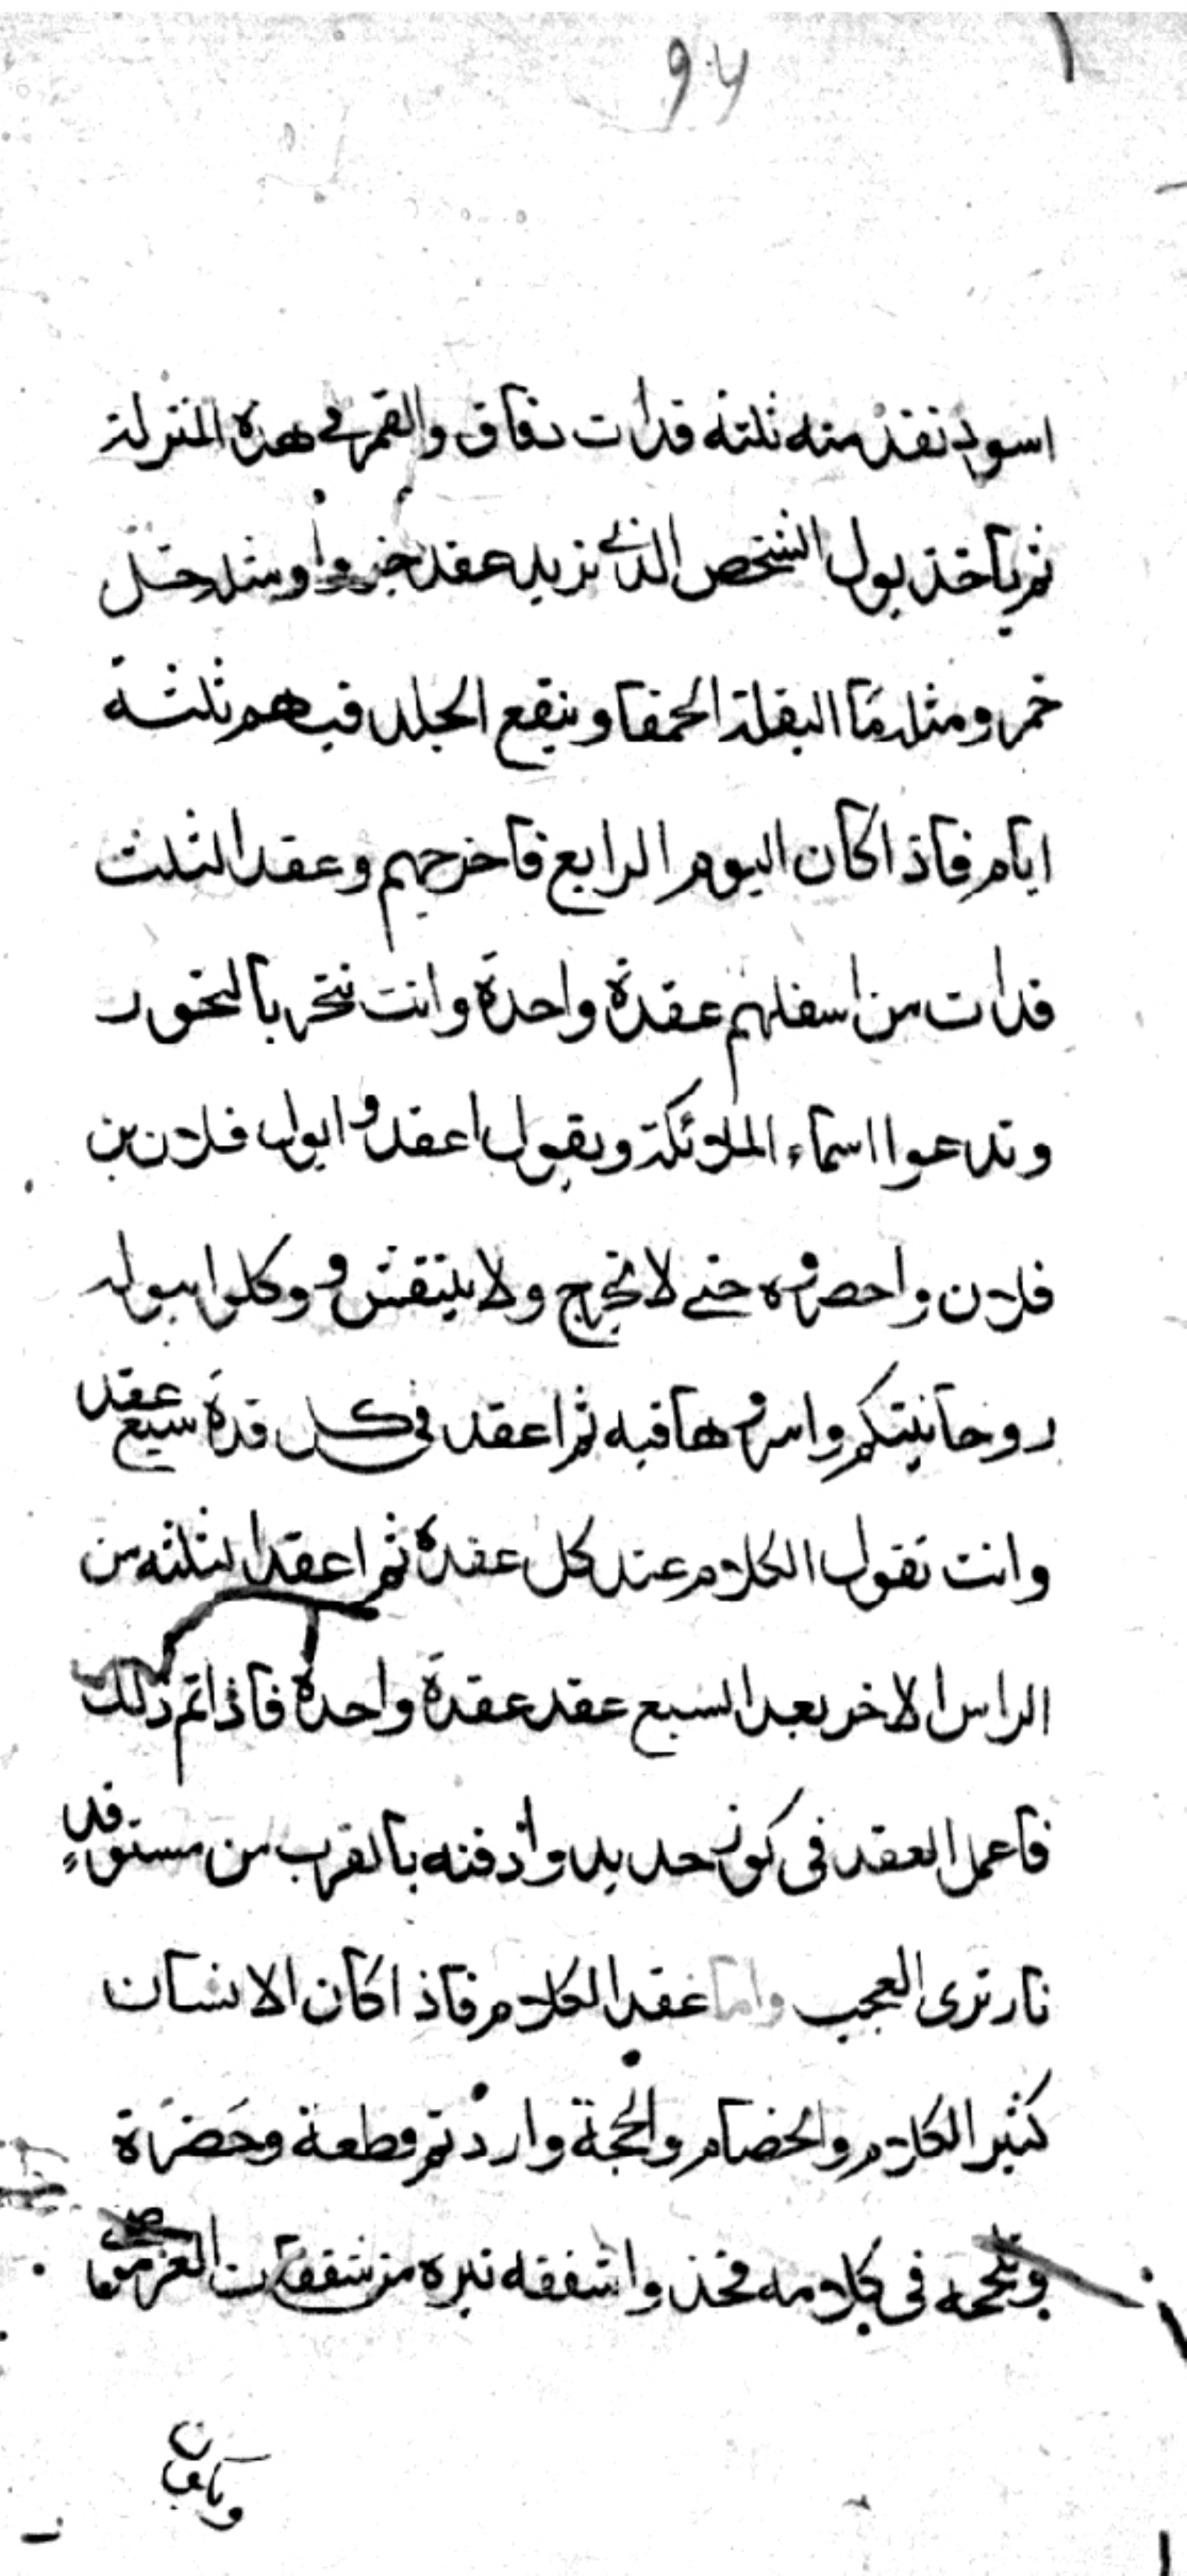 اسود نقد منه ثلثه قدات دقاق والقمر في هذه المنزلة
ثم ياخذ بول الشخص الذي تريد عقد ومثله خل
خمر ومثله ما البقلة الحمقا وينقع الجلد فيهم ثلثة
ايام فاذا كان اليوم الرابع فاخرجهم وعقد الثلث
قدات من اسفلهم عقدة واحدة وانت تبخر بالبخور
وتدعوا اسماء الملائكة ويقول اعقدوا ابواب فلان بن
فلان واحصروه حتى لا يخرج ولا ينتقش ووكلوا ببوله
روحانيتكم واسروها فيه ثم اعقد في كل قدة سبع عقد
وانت تقول الكلام عند كل عقدة ثم اعقد الثلثه من
الراس الاخر بعد السبع عقد عقدة واحدة فاذا تم ذلك
فاعمل العقد في كوز حديد وادفنه بالقرب من مستوقد
نار ترى العجب واما عقد الكلام فاذا كان الانسان
كثير الكلام والخصام والحجة واردتم قطعة وحضرة
في كلامه فخذ واشفقه نيره من شقفات